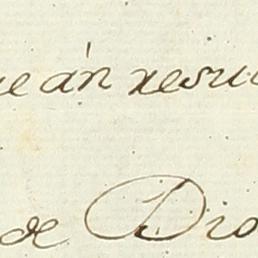 eán resu
de Dio